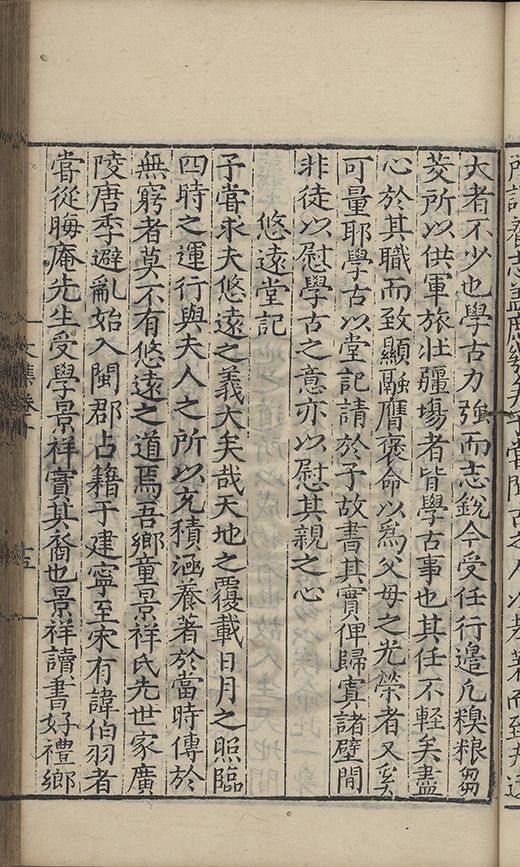 大者不少也學古力強而志銳今受任行邊凡糗粮芻
茭所以供軍旅壯疆埸者皆學古事也其任不輕矣盡
心於其職而致顯融膺褒命以爲父母之光榮者又奚
可量耶學古以堂記請於予故書其實俾歸寘諸壁間
非徒以慰學古之意亦以慰其親之心
悠遠堂記
予嘗求夫悠遠之義大矣哉天地之覆載日月之照臨
四時之運行與夫人之所以充積涵養者於當時傳於
無窮者莫不有悠遠之道焉吾鄉童景祥氏先世家廣
陵唐季避亂始入閩郡占籍于建寧至宋有諱伯羽者
嘗從晦庵先生受學景祥實其裔也景祥讀書好禮鄉
文集卷十
十五